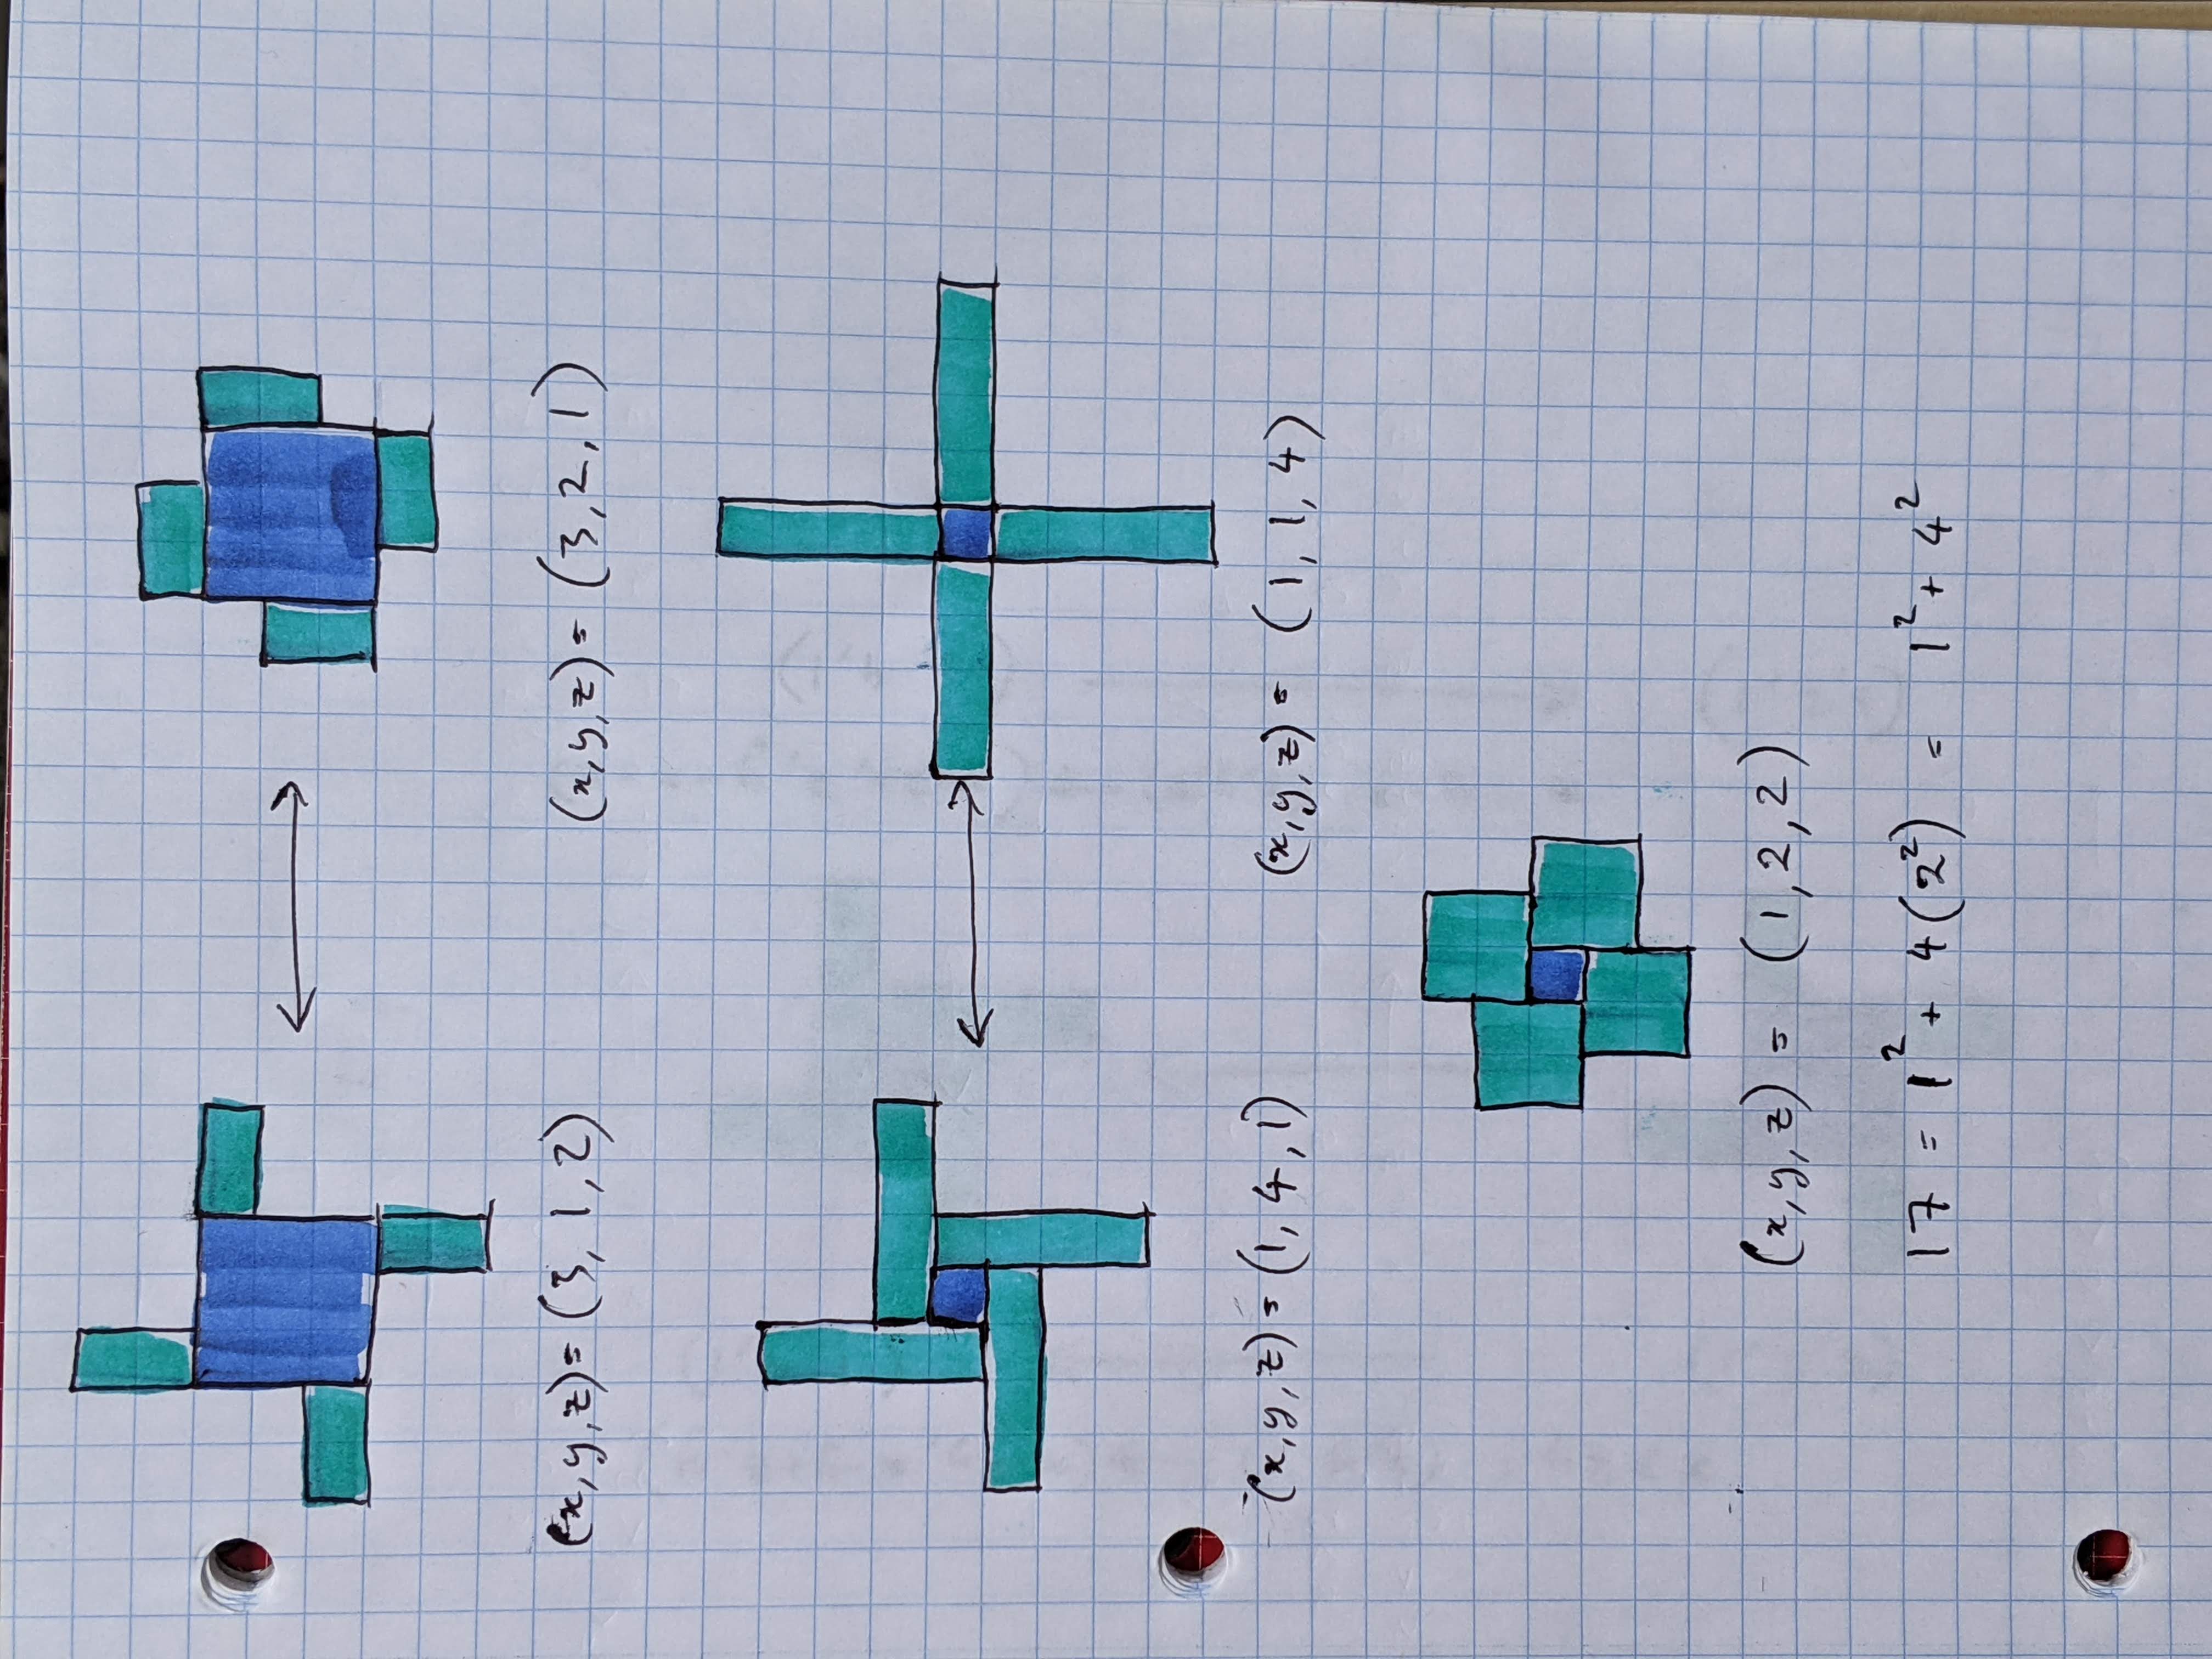 (x,y,z)= (3, 1, 2) (x,y,z) = (3,2,1)
(x,y,z) = (1, 4, 1) (x,y,z) = (1, 1, 4)
(x,y,z) = (1,2,2)
17 = 1² + 4(2²) = 1² + 4²